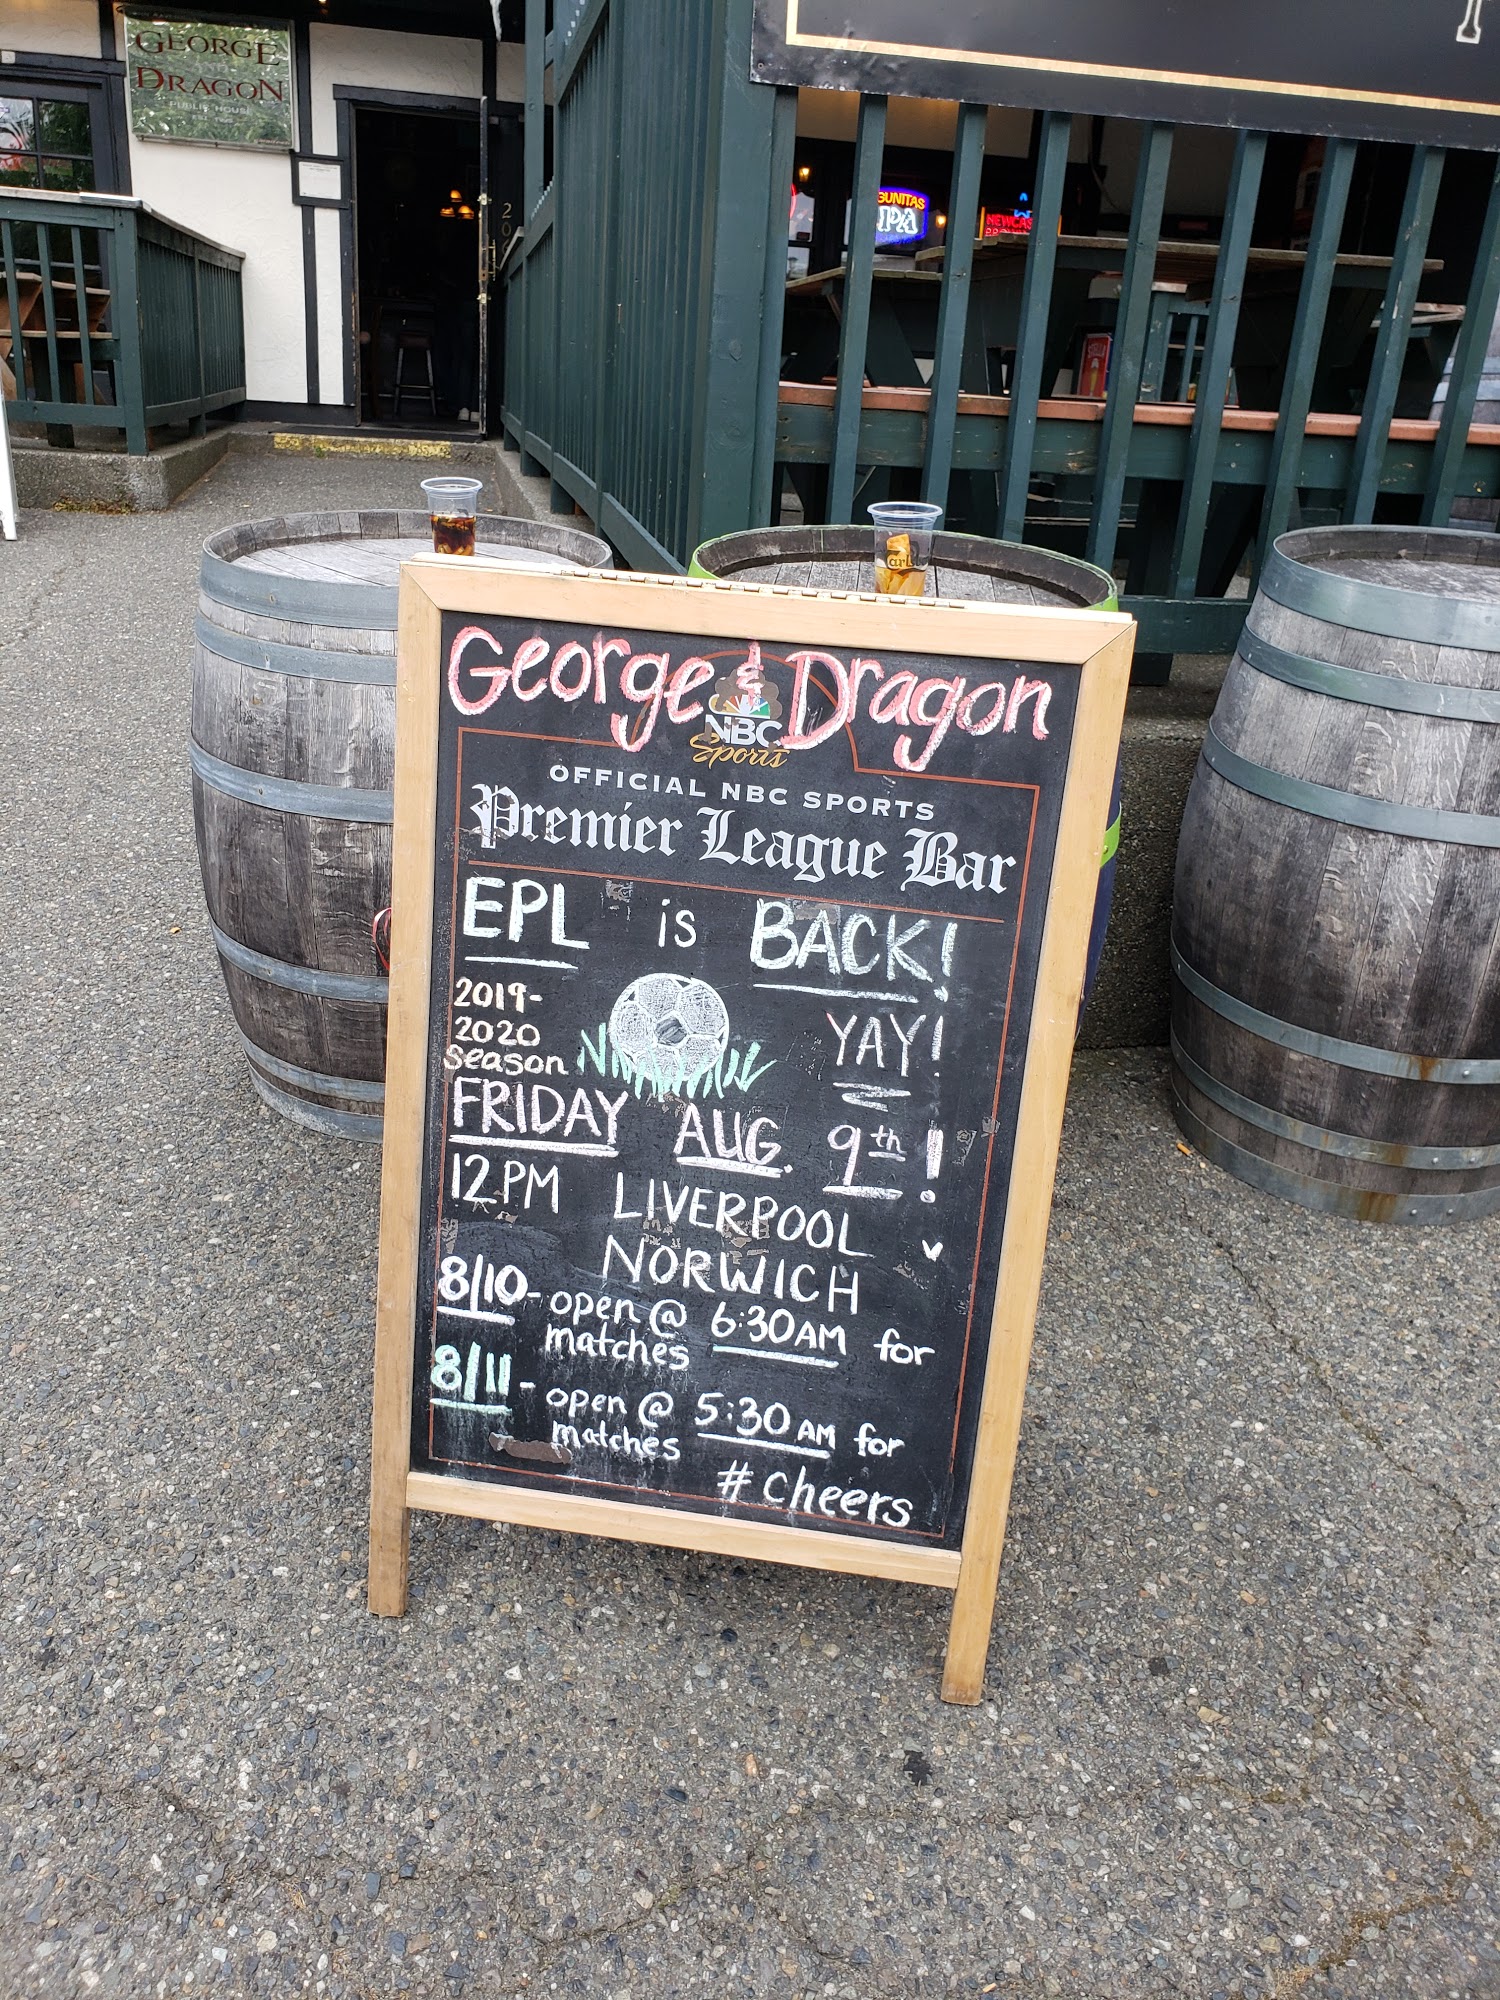 GEORGE
DRAGON
PUBLIC HOUSE
206
GUNITAS
IPA
NEWCAS
STELLA
George & Dragon
NBC
Sports
OFFICIAL NBC SPORTS
Premier League Bar
EPL is BACK!
2019-
2020
season
YAY!
FRIDAY AUG. 9th!
12PM LIVERPOOL v
NORWICH
8/10- open @ 6:30AM for
matches
8/11- open @ 5:30AM for
matches
#cheers